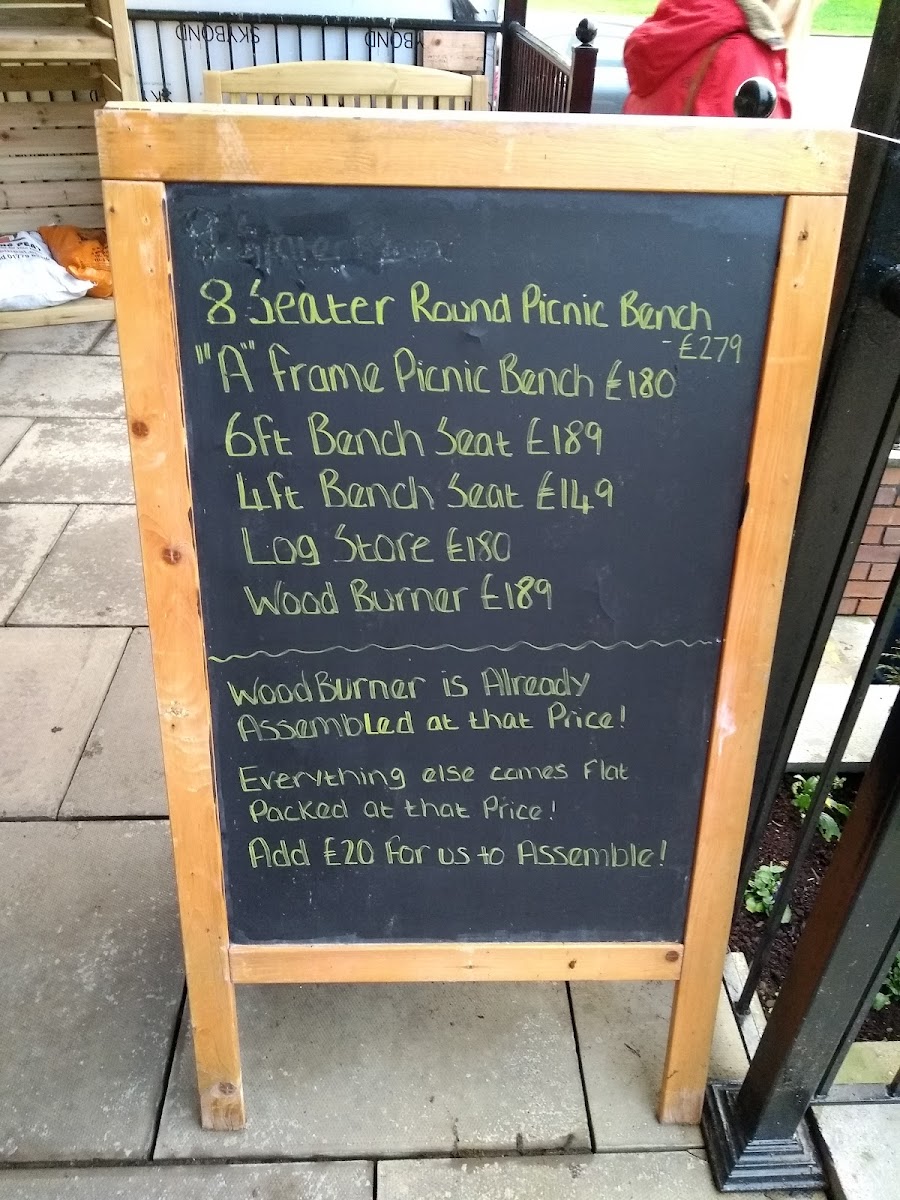 SKYBOND
8 Seater Round Picnic Bench
- £279
""A"" frame Picnic Bench £180
6ft Bench Seat £189
4ft Bench Seat £149
Log Store £180
Wood Burner £189
Wood Burner is Already
Assembled at that Price!
Everything else comes Flat
Packed at that Price!
Add £20 For us to Assemble!